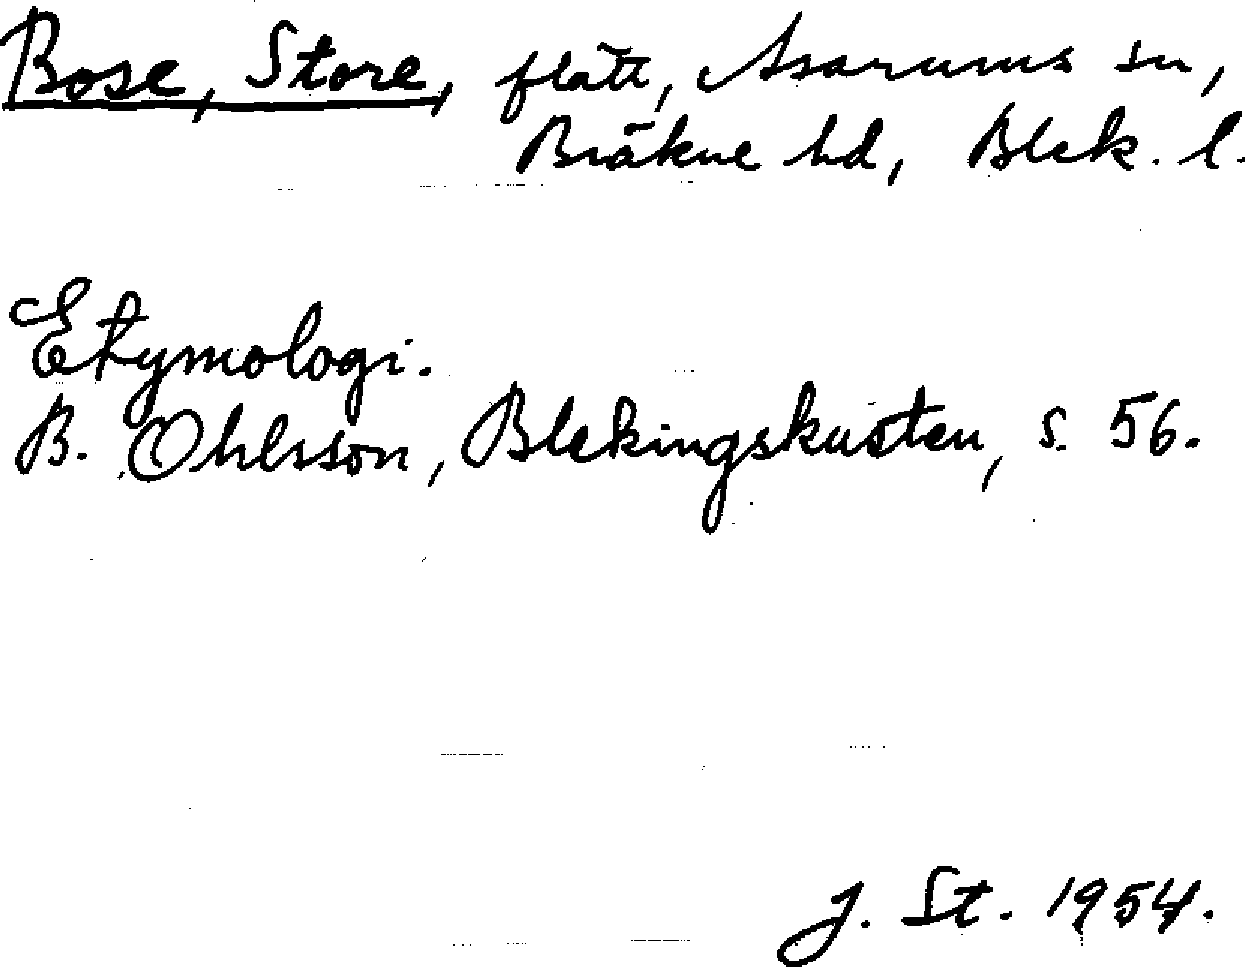 Bose, Store, flätt, Asarums sn,
Bräkne hd, Blek. l.
Etymologi.
B. Ohlsson, Blekingskusten, s. 56.
J. St. 1954.